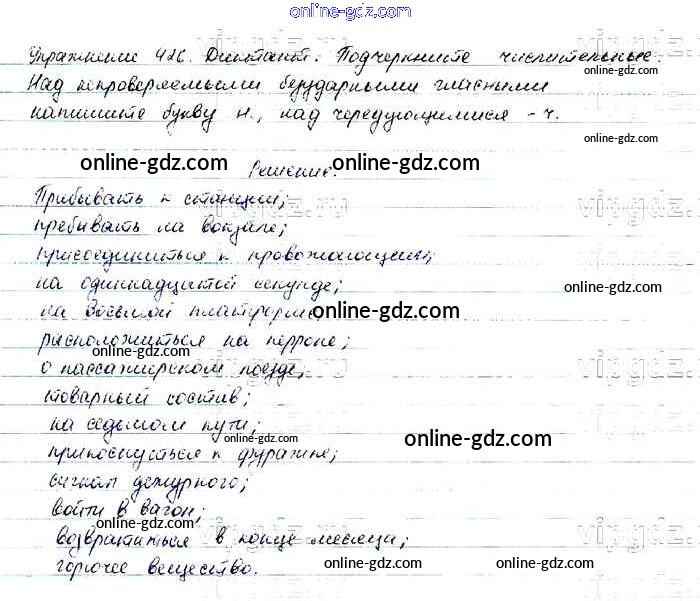 online-gdz.com
Упражнение 426. Диктант. Подчеркните числительные.
online-gdz.com
Над непроверяемыми безударными гласными
напишите букву н., над чередующимися - ч.
online-gdz.com
online-gdz.com Решение. online-gdz.com
Прибывать к станции; vipgdz.ru
пребывать на вокзале; vipgdz.ru
присоединиться к провожающим;
на одиннадцатой секунде; online-gdz.com
на восьмой платформе; online-gdz.com
расположиться на перроне;
online-gdz.com vipgdz.ru
о пассажирском поезде;
товарный состав;
на седьмом пути;
online-gdz.com online-gdz.com
прикоснуться к фуражке;
сигнал дежурного;
войти в вагон;
online-gdz.com
возвратиться в конце месяца;
горючее вещество. online-gdz.com